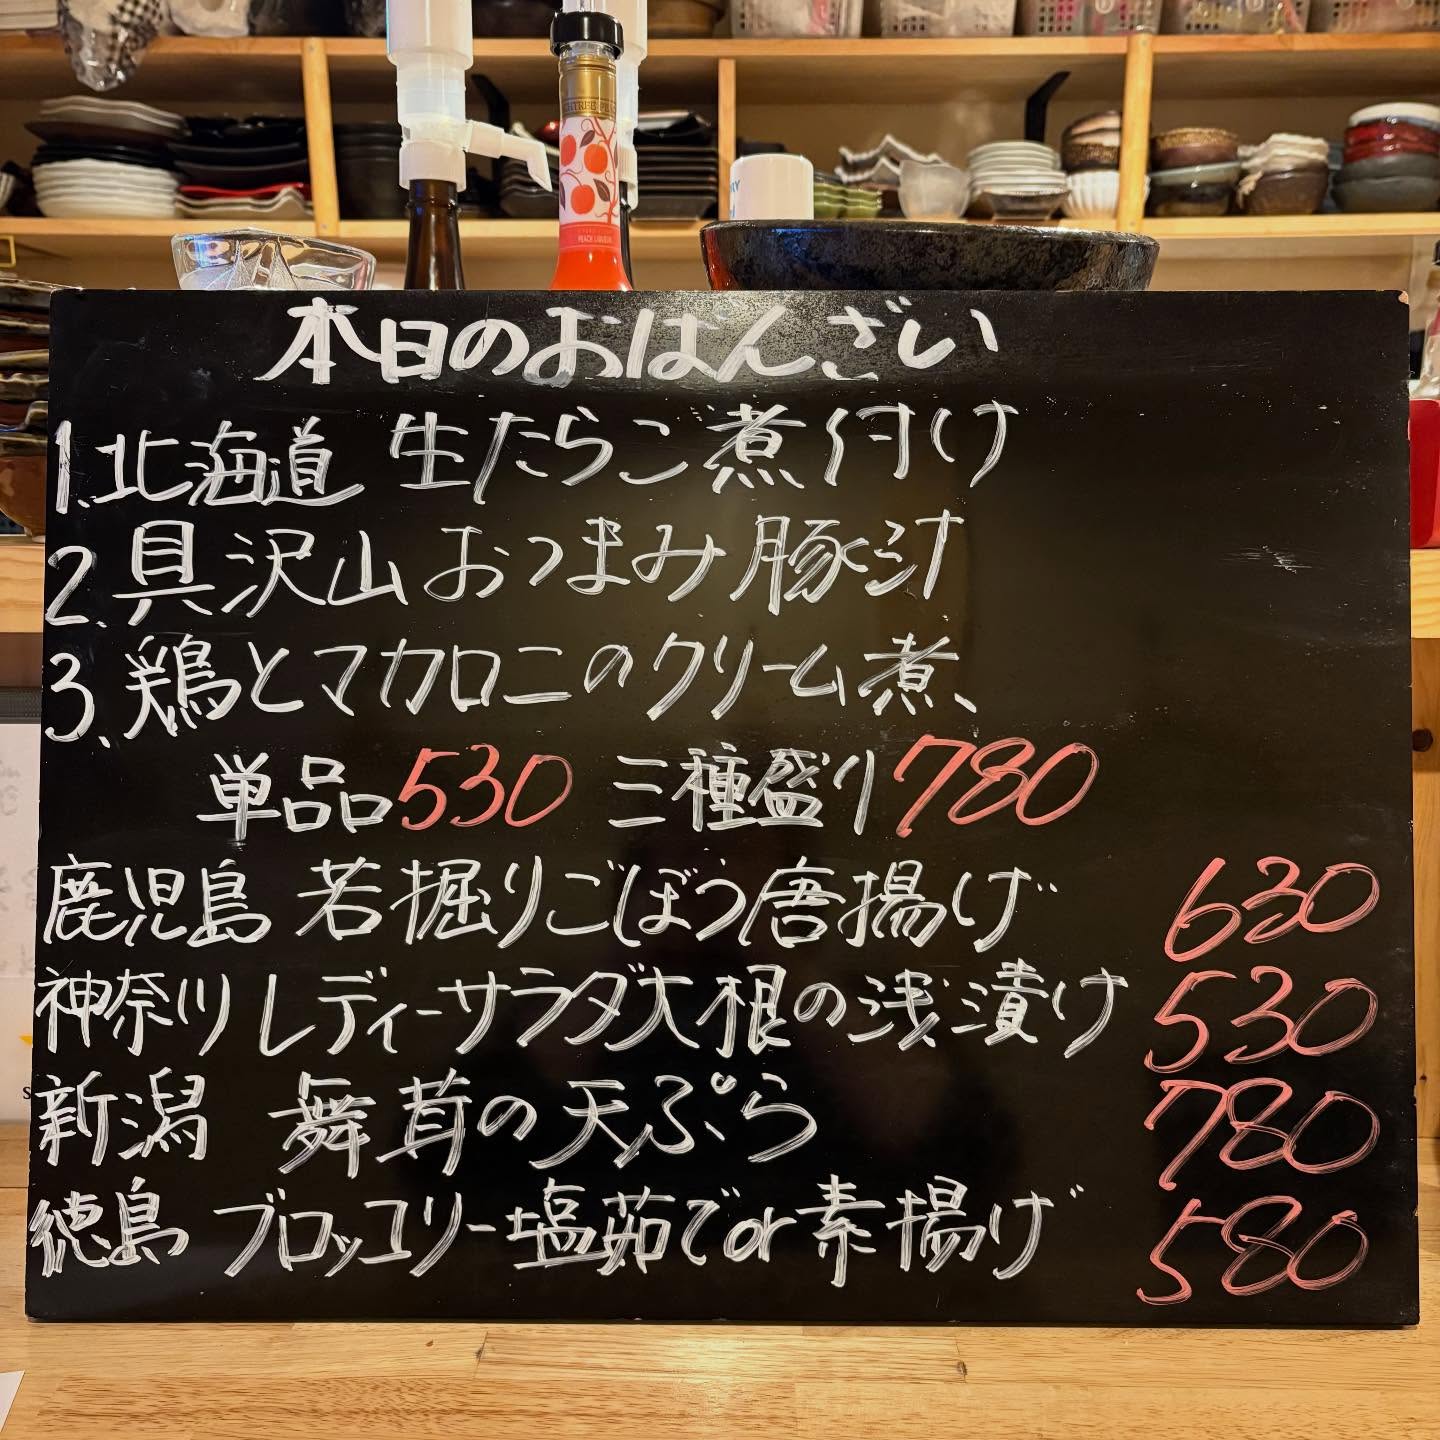 PEACH LIQUEUR
本日のおばんざい
1.北海道 生たらこ煮付け
2.具沢山おつまみ豚汁
3.鶏とマカロニのクリーム煮、
単品530 三種盛り780
鹿児島 若掘りごぼう唐揚げ 630
神奈川 レディーサラダ大根の浅漬け 530
新潟 舞茸の天ぷら 780
徳島 ブロッコリー塩茹でor素揚げ 580